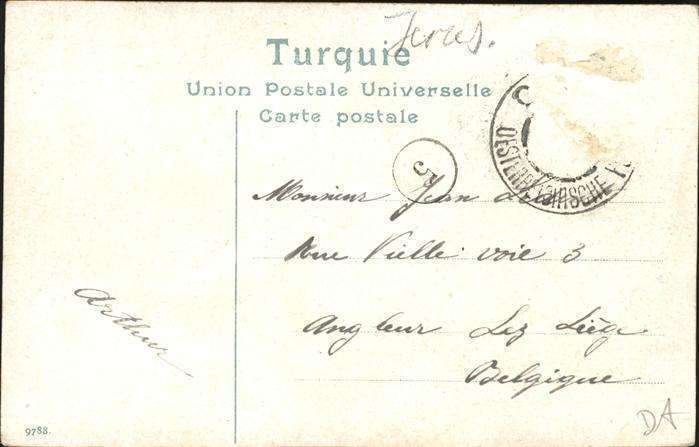 Jerus.
Turquie
Union Postale Universelle
Carte postale
OESTERREICHISCHE
5
Monsieur Jean
Rue Vielle voie 3
Angleur Lez Liège
Belgique
Arthur
9788.
DA